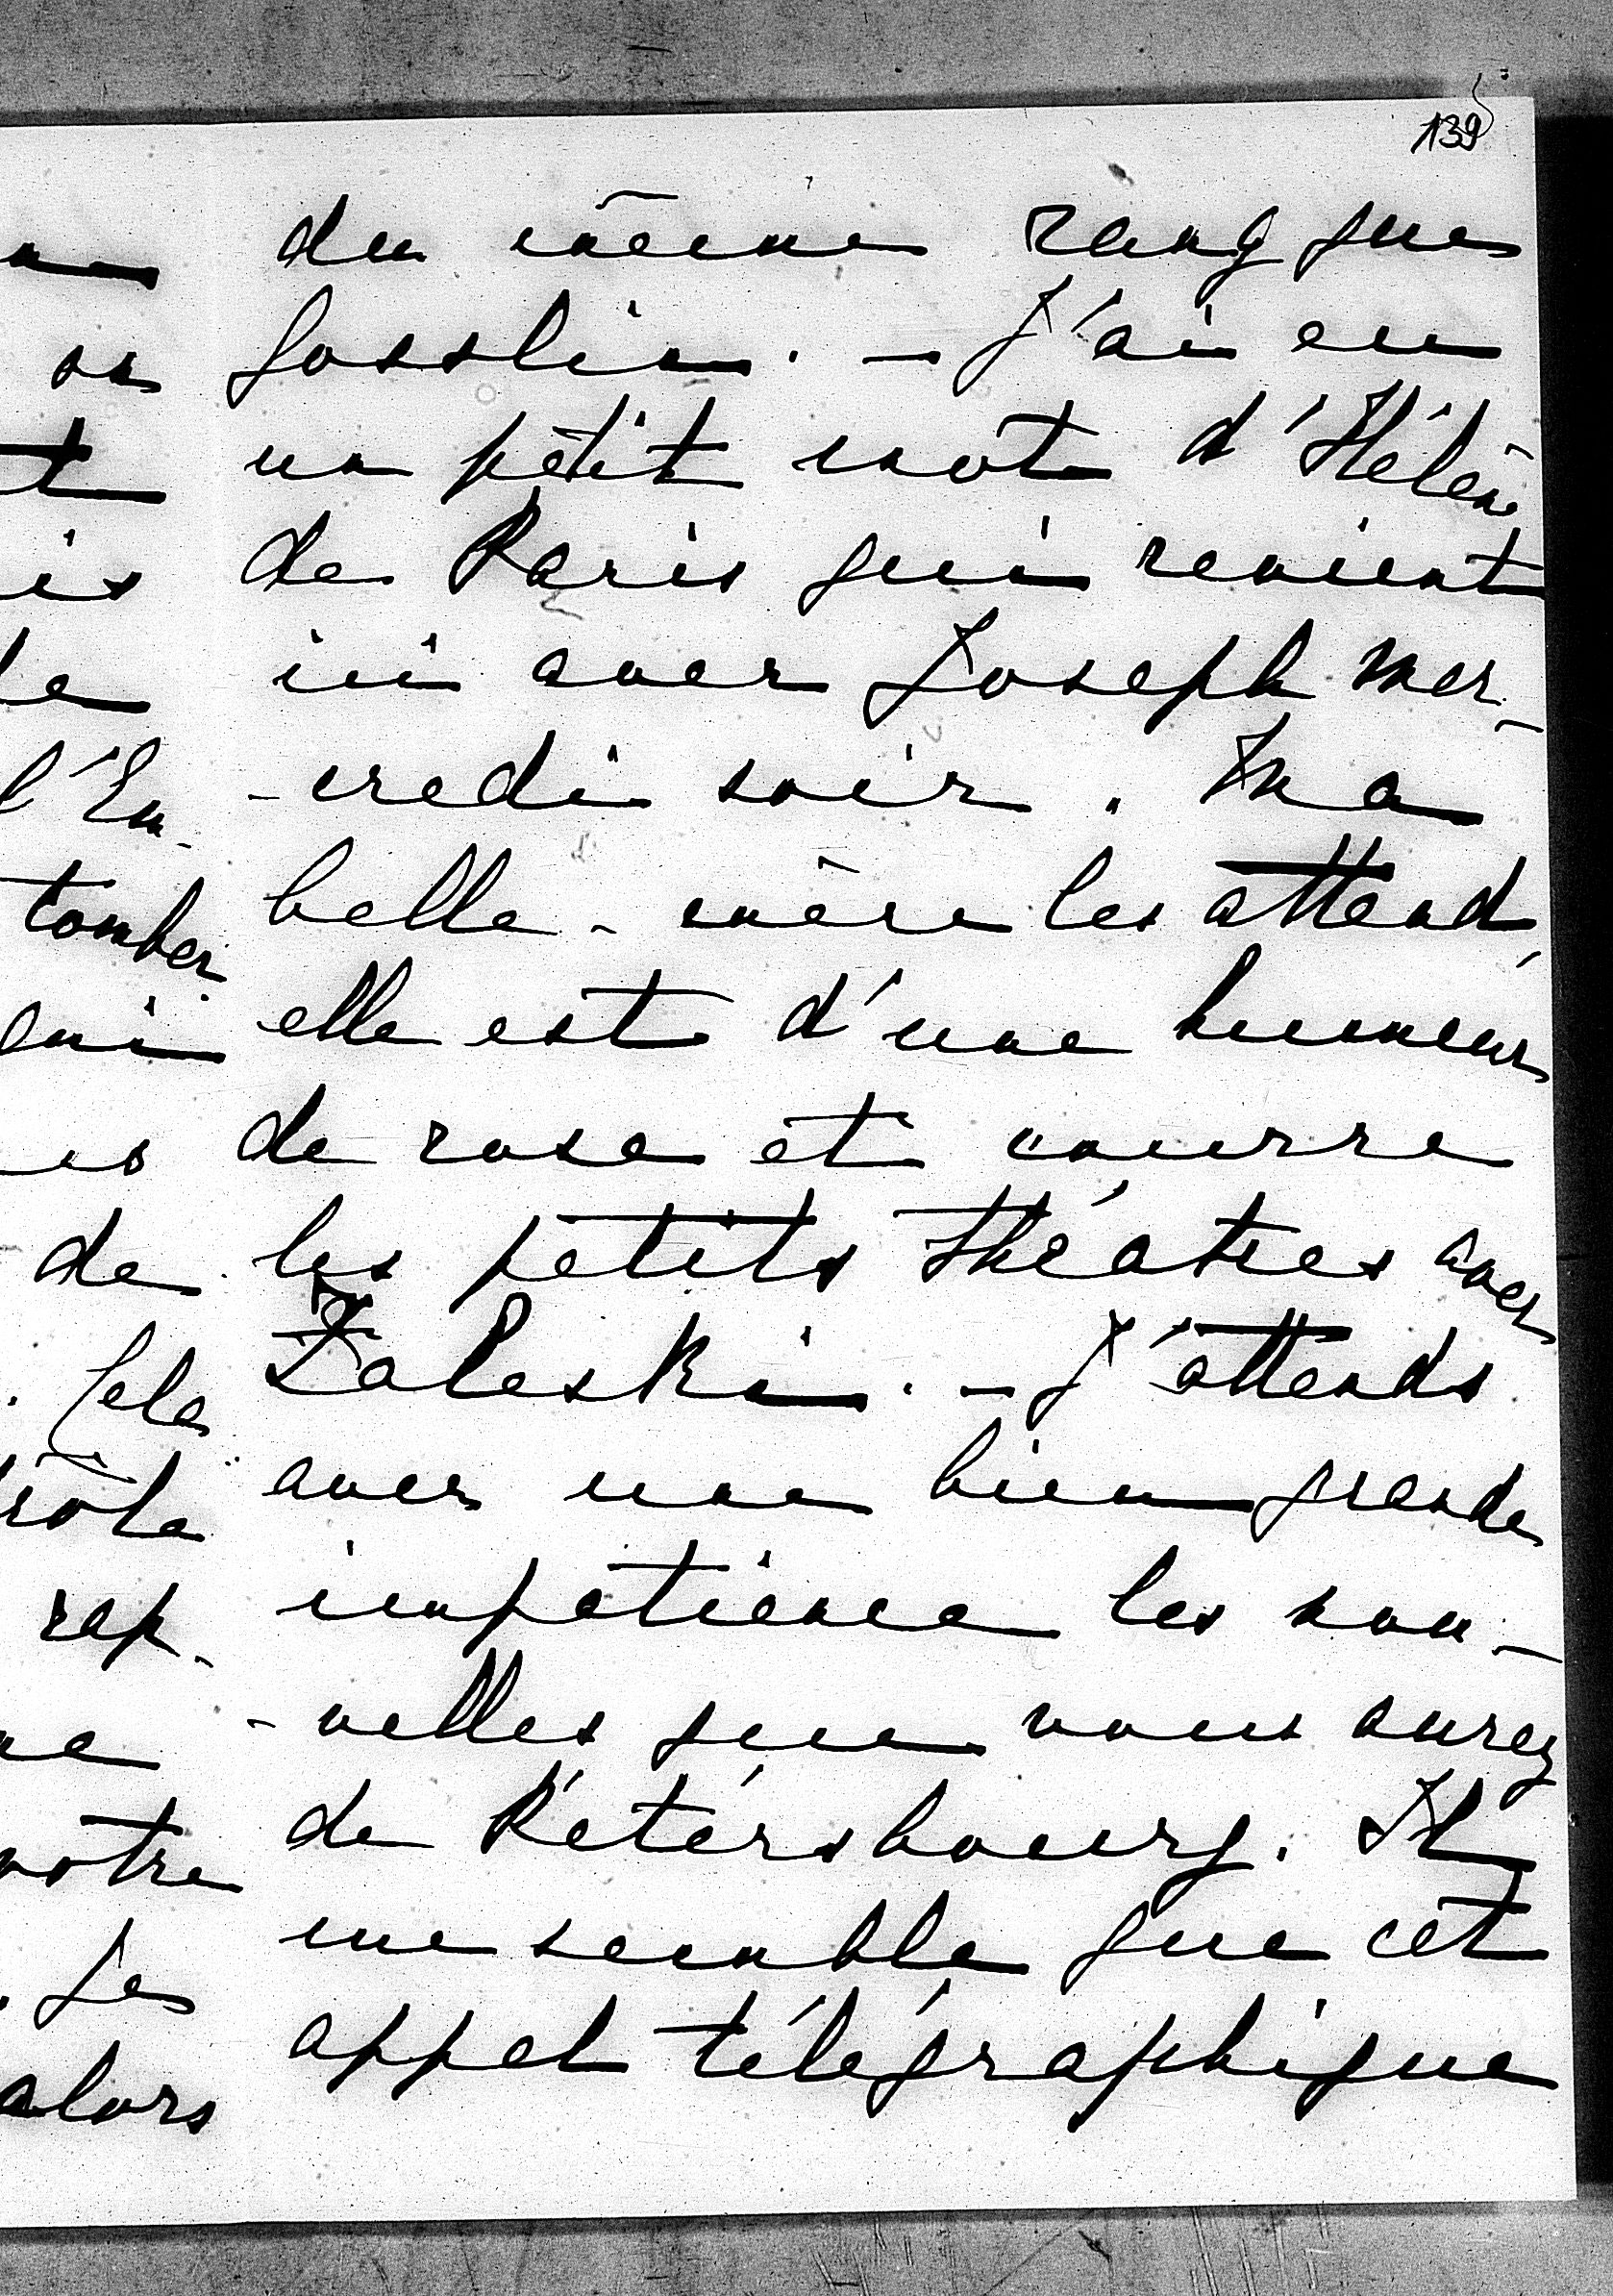 139
du même rang que
Josslin. — J'ai eu
un petit mot d'Hélène
de Paris qui revient
ici avec Joseph mer-
-credi soir. Ma
belle-mère les attend,
elle est d'une humeur
de rose et courre
les petits théâtres avec
Zaleski. — J'attends
avec une bien grande
impatience les nou-
-velles que vous aurez
de Pétersbourg. Il
me semble que cet
appel télégraphique
on
is
l'Em-
tomber
de
Cela
rôle
rap-
notre
Je
alors